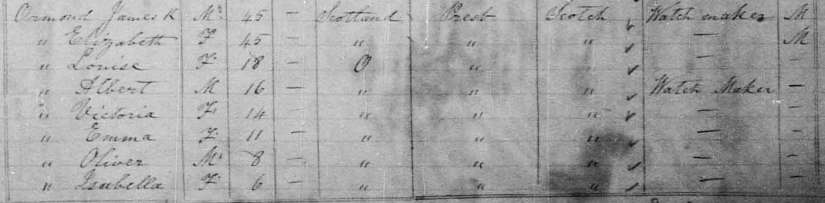 Ormond James K M 45 — Scotland Presb Scotch Watch maker M
" Elizabeth F 45 — " " " — M
" Louise F 18 — O " " — —
" Albert M 16 — " " " Watch Maker —
" Victoria F 14 — " " " — —
" Emma F 11 — " " " — —
" Oliver M 8 — " " " — —
" Isabella F 6 — " " " — —